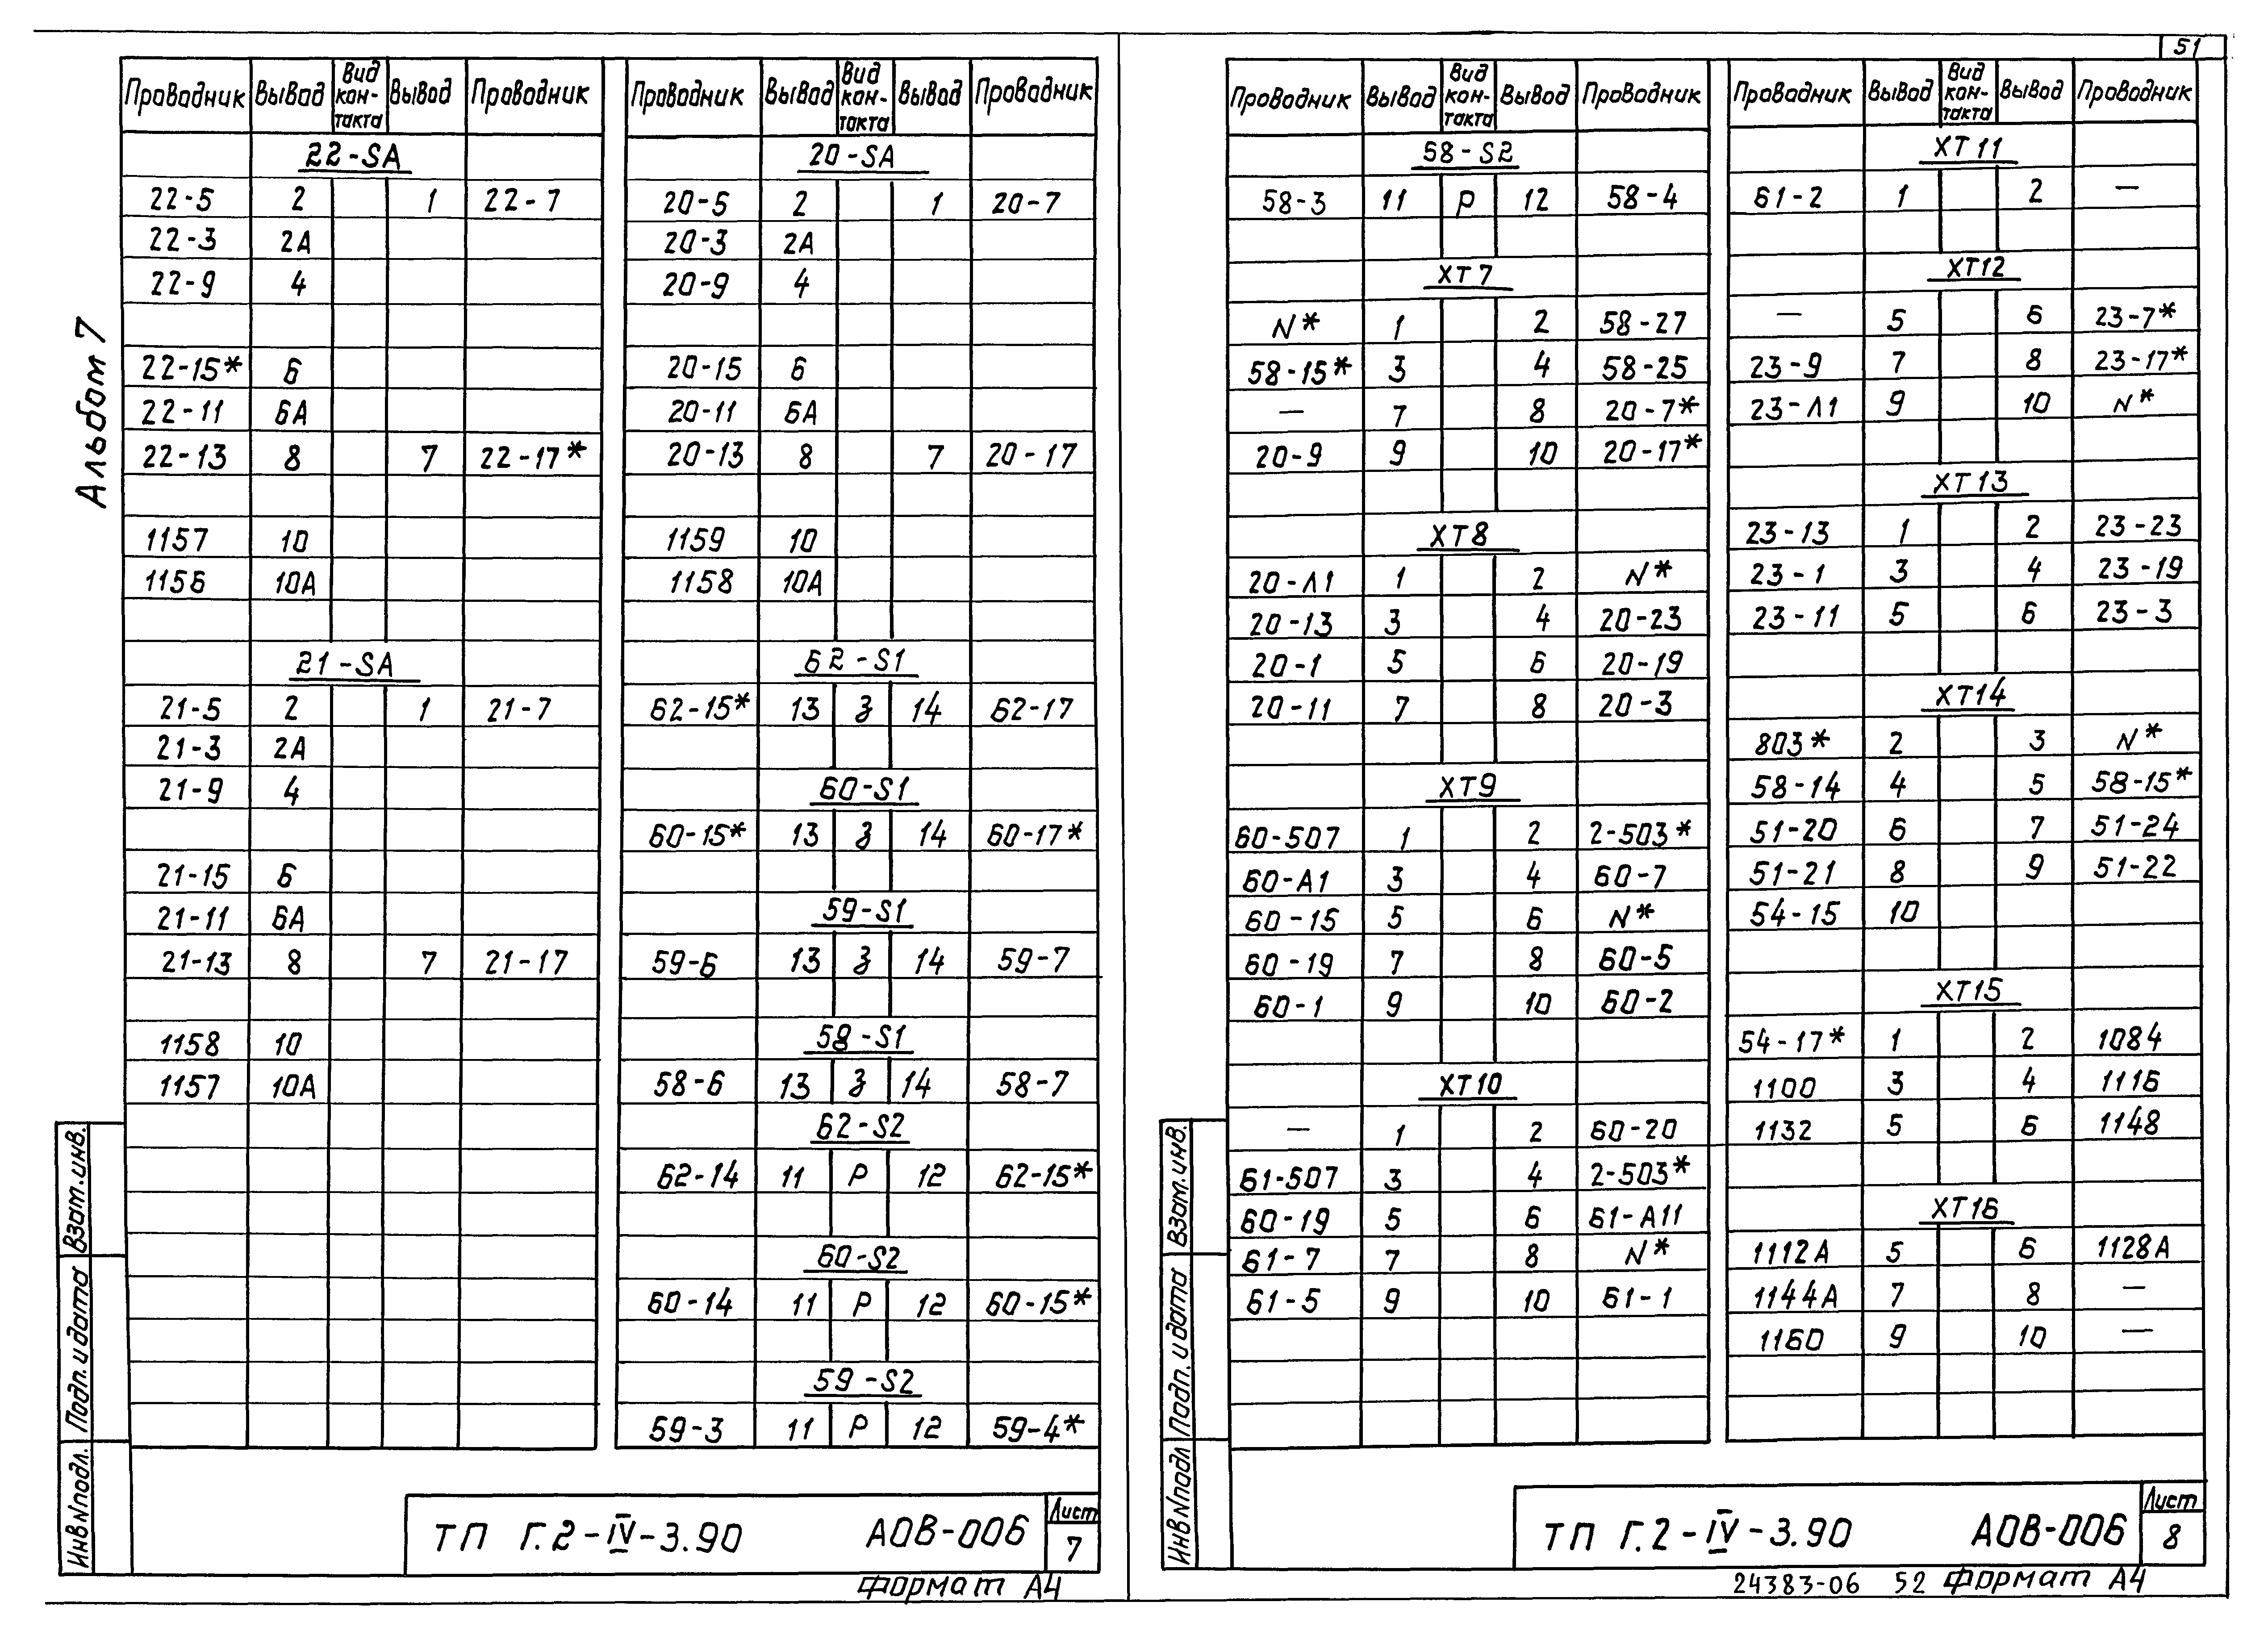 51
Альбом 7
Проводник Вывод Вид кон-такта Вывод Проводник
22-SA
22-5 2 1 22-7
22-3 2А
22-9 4
22-15* 6
22-11 6А
22-13 8 7 22-17*
1157 10
1156 10А
21-SA
21-5 2 1 21-7
21-3 2А
21-9 4
21-15 6
21-11 6А
21-13 8 7 21-17
1158 10
1157 10А
Проводник Вывод Вид кон-такта Вывод Проводник
20-SA
20-5 2 1 20-7
20-3 2А
20-9 4
20-15 6
20-11 6А
20-13 8 7 20-17
1159 10
1158 10А
62-S1
62-15* 13 З 14 62-17
60-S1
60-15* 13 З 14 60-17*
59-S1
59-6 13 З 14 59-7
58-S1
58-6 13 З 14 58-7
62-S2
62-14 11 Р 12 62-15*
60-S2
60-14 11 Р 12 60-15*
59-S2
59-3 11 Р 12 59-4*
Взам.инв.
Подп. и дата
Инв N подл.
ТП Г.2-IV-3.90 АОВ-006
Лист
7
Формат А4
Проводник Вывод Вид кон-такта Вывод Проводник
58-S2
58-3 11 Р 12 58-4
ХТ7
N* 1 2 58-27
58-15* 3 4 58-25
— 7 8 20-7*
20-9 9 10 20-17*
ХТ8
20-Л1 1 2 N*
20-13 3 4 20-23
20-1 5 6 20-19
20-11 7 8 20-3
ХТ9
60-507 1 2 2-503*
60-А1 3 4 60-7
60-15 5 6 N*
60-19 7 8 60-5
60-1 9 10 60-2
ХТ10
— 1 2 60-20
61-507 3 4 2-503*
60-19 5 6 61-А11
61-7 7 8 N*
61-5 9 10 61-1
Проводник Вывод Вид кон-такта Вывод Проводник
ХТ11
61-2 1 2 —
ХТ12
— 5 6 23-7*
23-9 7 8 23-17*
23-Л1 9 10 N*
ХТ13
23-13 1 2 23-23
23-1 3 4 23-19
23-11 5 6 23-3
ХТ14
803* 2 3 N*
58-14 4 5 58-15*
51-20 6 7 51-24
51-21 8 9 51-22
54-15 10
ХТ15
54-17* 1 2 1084
1100 3 4 1116
1132 5 6 1148
ХТ16
1112А 5 6 1128А
1144А 7 8 —
1160 9 10 —
Взам.инв.
Подп. и дата
Инв N подл
ТП Г.2-IV-3.90 АОВ-006
Лист
8
24383-06 52 Формат А4